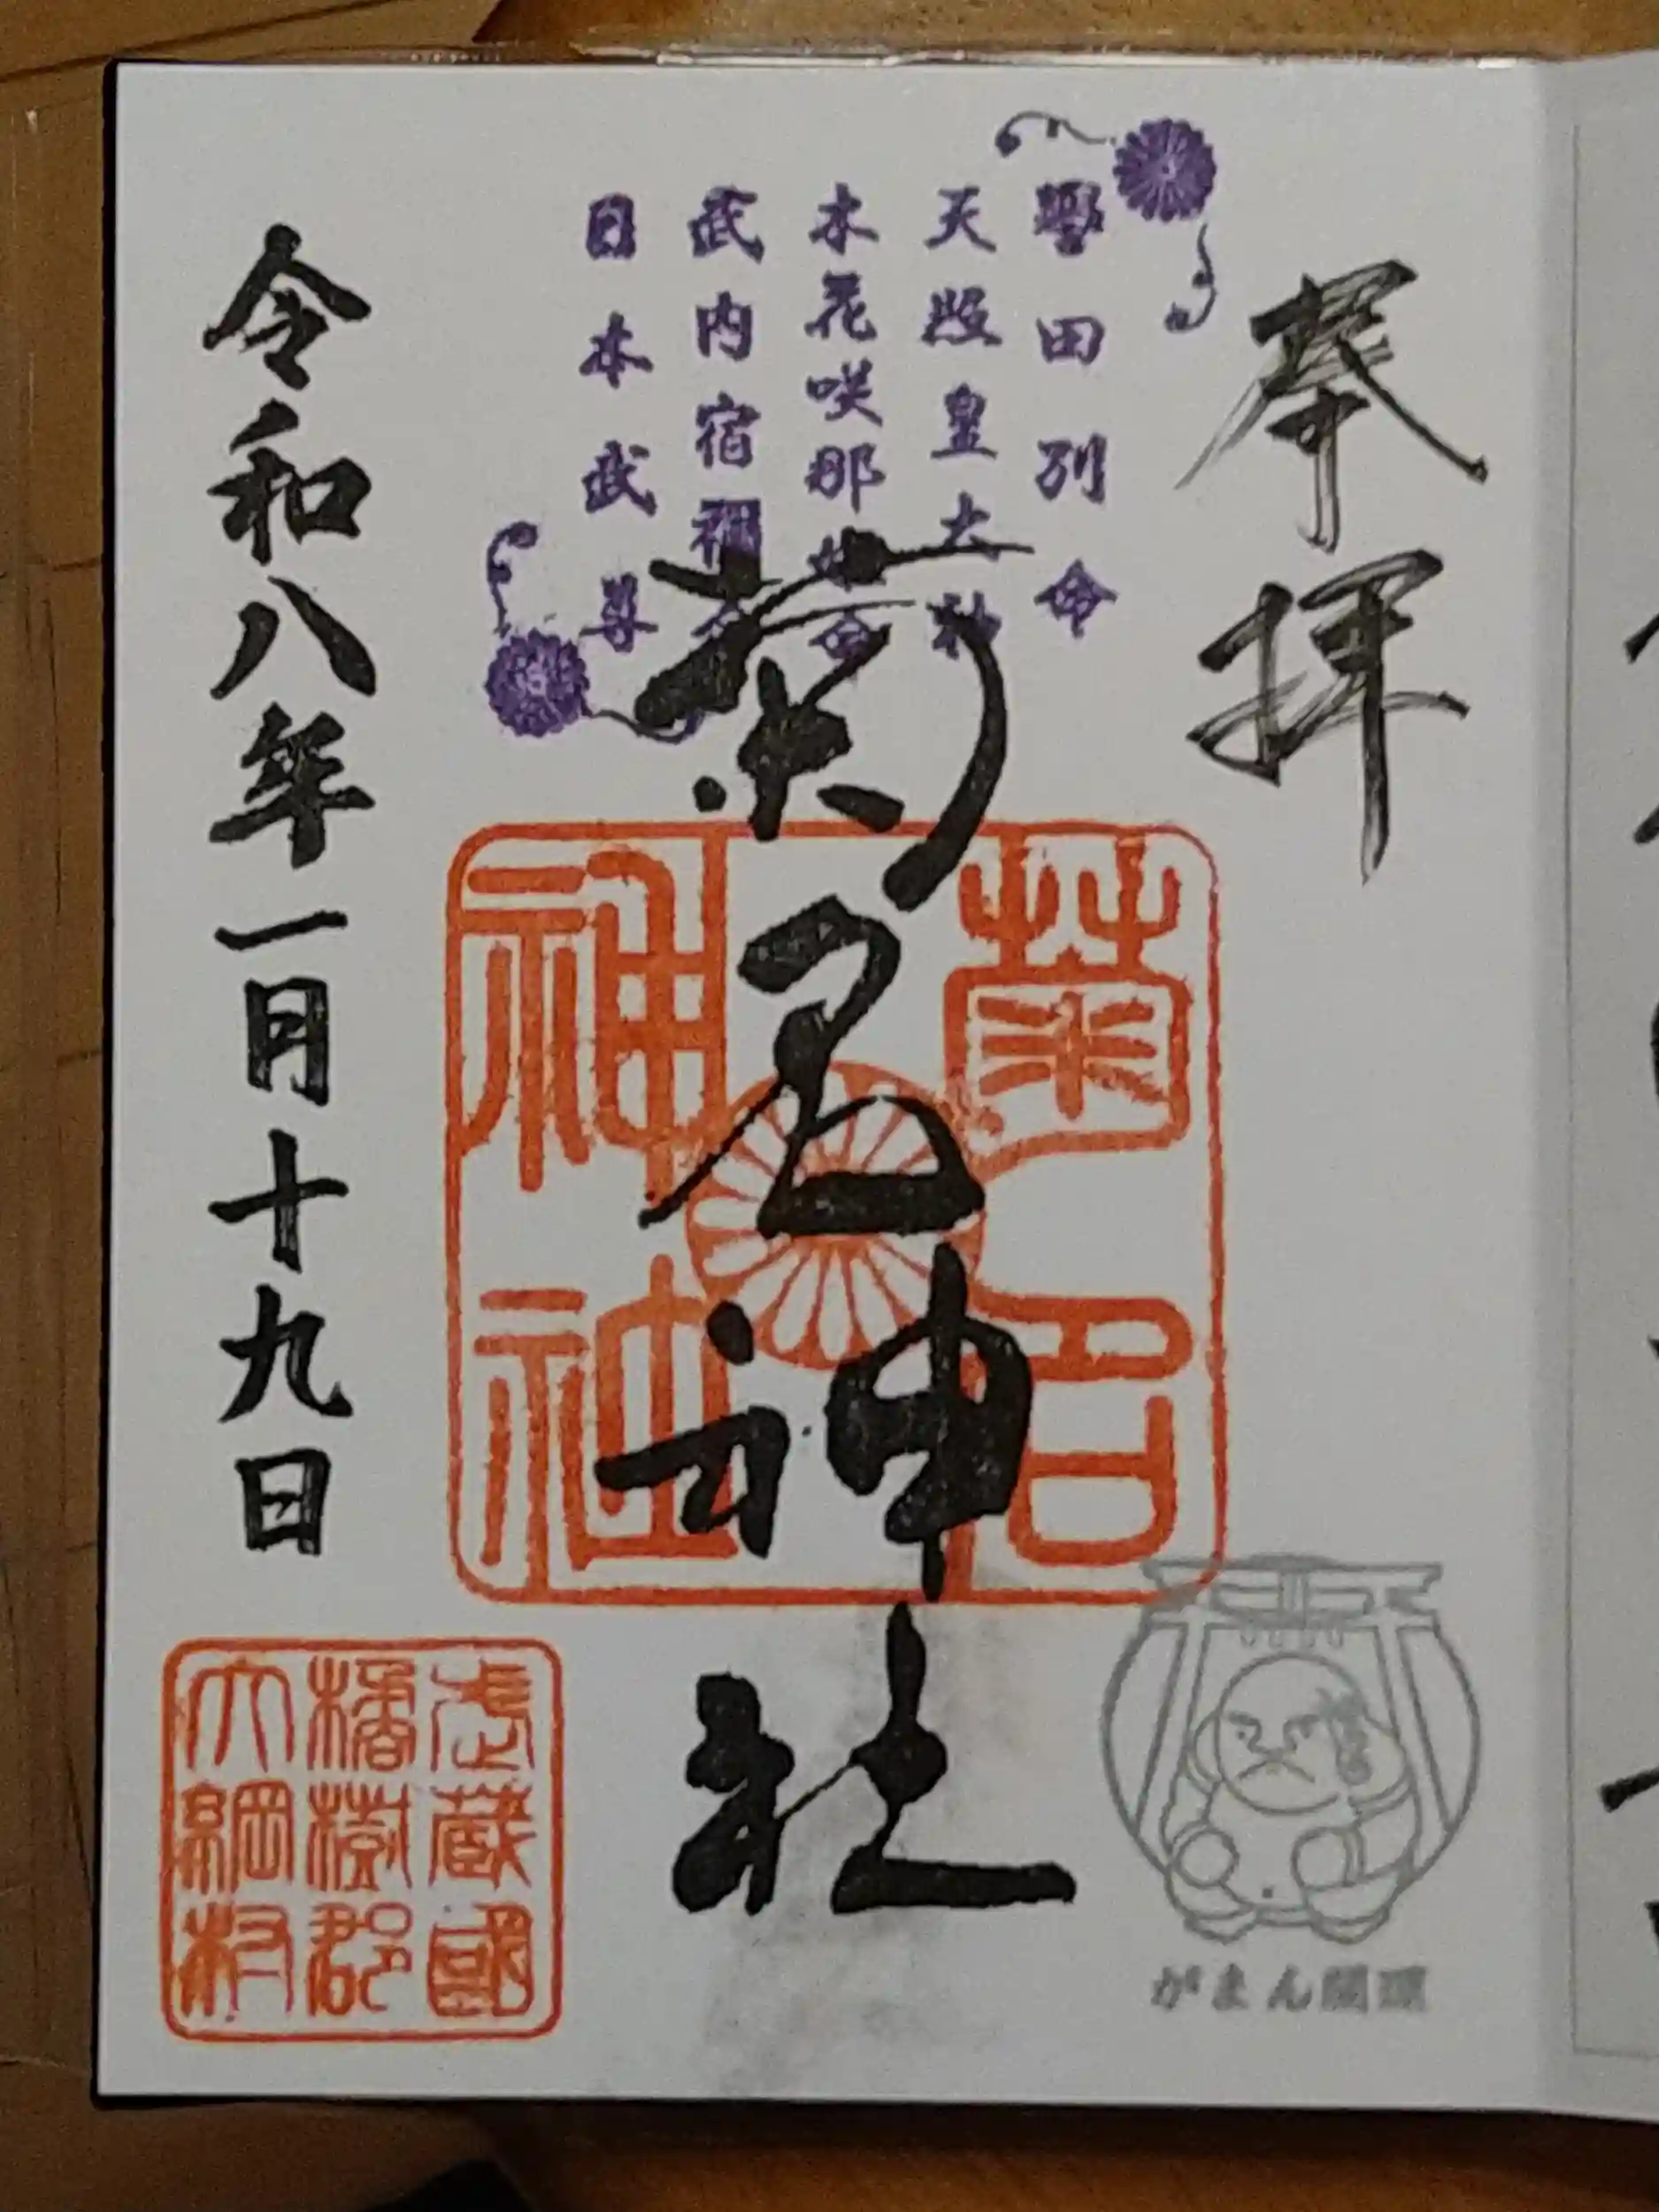 奉拝
誉田別命
天照皇大神
木花咲耶姫命
武内宿禰命
日本武尊
菊名神社
菊名神社
令和八年一月十九日
武蔵國
橘樹郡
大綱村
がまん開運